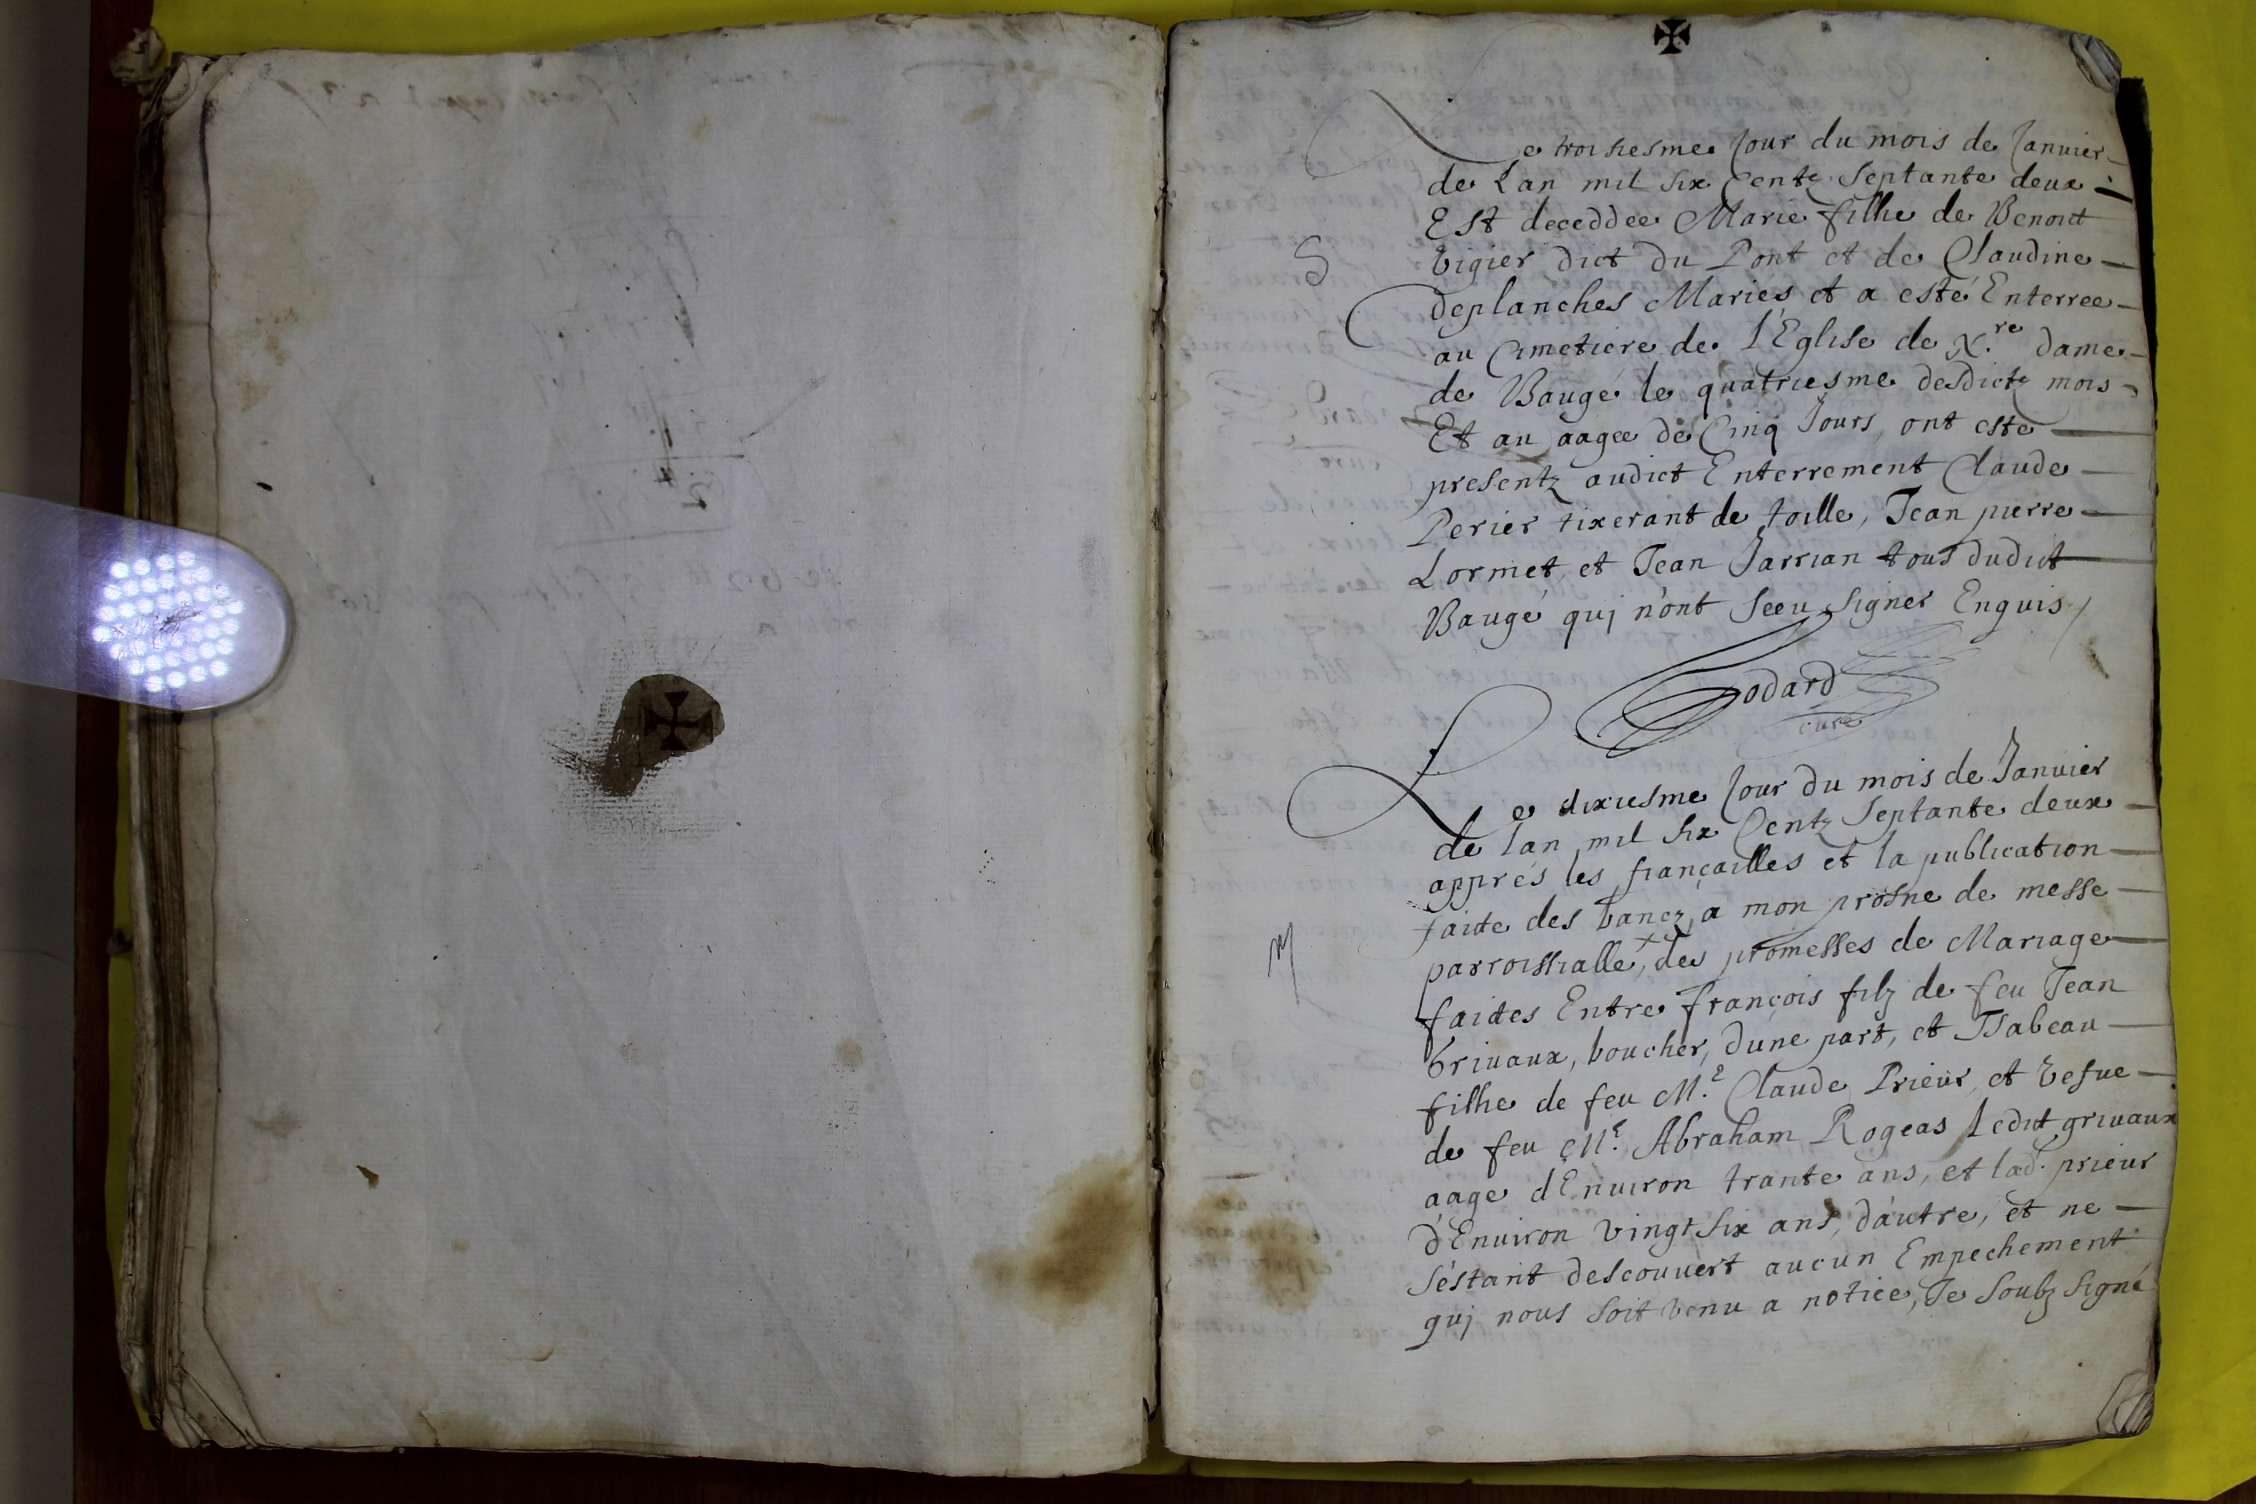 Le troisiesme Jour du mois de Janvier
de Lan mil six Centz Septante deux
Est deceddee Marie filhe de Benoict
S
Vigier dict du Pont et de Claudine
deplanches Mariés et a esté Enterree
au Cimetiere de l'Eglise de N.re dame
de Baugé le quatriesme desdictz mois
Et an aagee de Cinq Jours, ont esté
presentz audict Enterrement Claude
Perier tixerant de toille, Jean pierre
Lormet, et Jean Jarrian tous dudict
Baugé quj n'ont sceu signer Enquis
Godard
curé
Le dixiesme Jour du mois de Janvier
de lan mil six Centz Septante deux
apprés les fiançailles et la publication
faite des bancz a mon prosne de messe
M
parroissialle, des promesses de Mariage
faites Entre françois filz de feu Jean
Grivaux, boucher, dune part, et Isabeau
filhe de feu M.e Claude Prieur, et vesue
de feu M.e Abraham Rogeas ledit grivaux
aage d'Enuiron trante ans, et lad. prieur
d'Enuiron vingt six ans, dáutre, et ne
séstant descouvert aucun Empechement
quj nous soit venu a notice, Je soubz signé